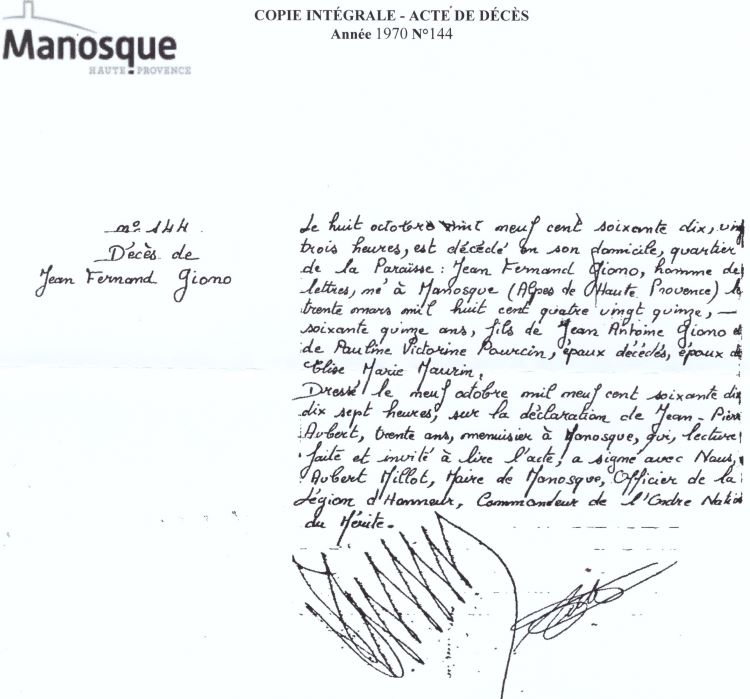 Manosque
HAUTE PROVENCE
COPIE INTÉGRALE - ACTE DE DÉCÈS
Année 1970 N°144
n° 144
Décès de
Jean Fernand Giono
Le huit octobre mil neuf cent soixante dix, vin
trois heures, est décédé en son domicile, quartier
de la Paraïsse : Jean Fernand Giono, homme de
lettres, né à Manosque (Alpes de Haute Provence) le
trente mars mil huit cent quatre vingt quinze, —
soixante quinze ans, fils de Jean Antoine Giono e
de Pauline Victorine Pourcin, époux décédés, époux d
Elise Marie Maurin.
Dressé le neuf octobre mil neuf cent soixante dix
dix sept heures, sur la déclaration de Jean-Pierr
Aubert, trente ans, menuisier à Manosque, qui, lecture
faite et invité à lire l'acte, a signé avec Nous,
Aubert Millot, Maire de Manosque, Officier de la
Légion d'Honneur, Commandeur de l'Ordre Natio
du Mérite.